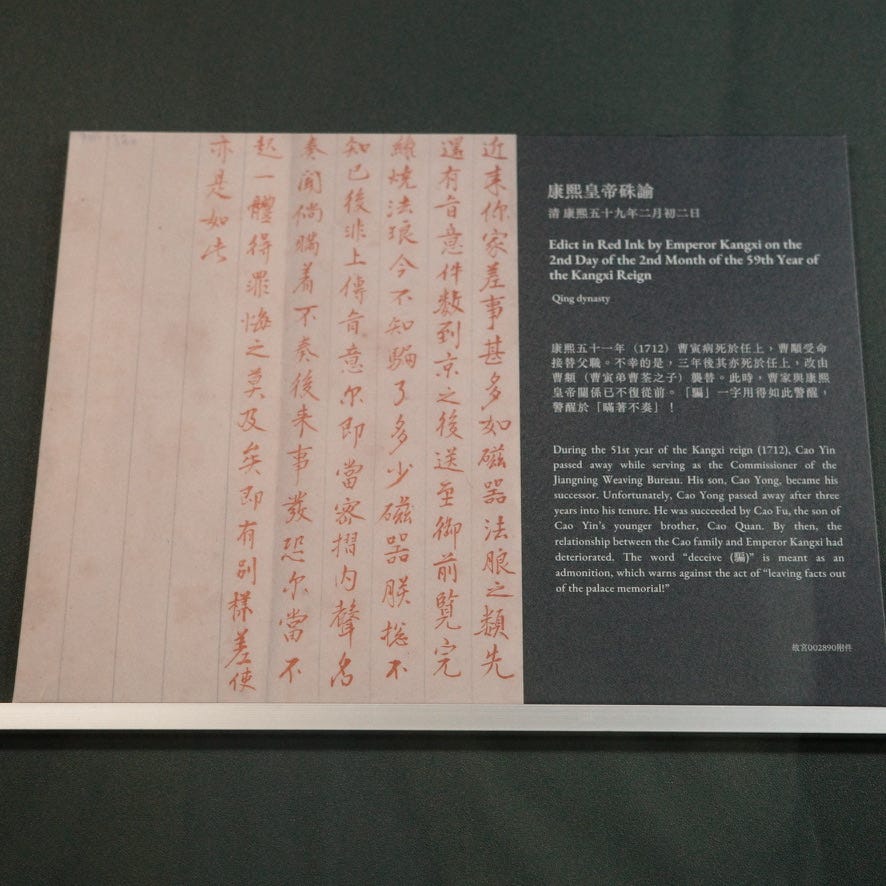 近来你家差事甚多如磁器法琅之類先
還有旨意件數到京之後送至御前覽完
纔燒法琅今不知騙了多少磁器朕摠不
知已後非上傳旨意尔即當密摺内聲名
奏聞倘瞞着不奏後来事發恐尔當不
起一體得罪悔之莫及矣即有別樣差使
亦是如此
康熙皇帝硃諭
清 康熙五十九年二月初二日
Edict in Red Ink by Emperor Kangxi on the
2nd Day of the 2nd Month of the 59th Year of
the Kangxi Reign
Qing dynasty
康熙五十一年（1712）曹寅病死於任上，曹顒受命
接替父職。不幸的是，三年後其亦死於任上，改由
曹頫（曹寅弟曹荃之子）襲替。此時，曹家與康熙
皇帝關係已不復從前。「騙」一字用得如此警醒，
警醒於「瞞著不奏」！
During the 51st year of the Kangxi reign (1712), Cao Yin
passed away while serving as the Commissioner of the
Jiangning Weaving Bureau. His son, Cao Yong, became his
successor. Unfortunately, Cao Yong passed away after three
years into his tenure. He was succeeded by Cao Fu, the son of
Cao Yin's younger brother, Cao Quan. By then, the
relationship between the Cao family and Emperor Kangxi had
deteriorated. The word “deceive (騙)” is meant as an
admonition, which warns against the act of “leaving facts out
of the palace memorial!”
故宮002890附件